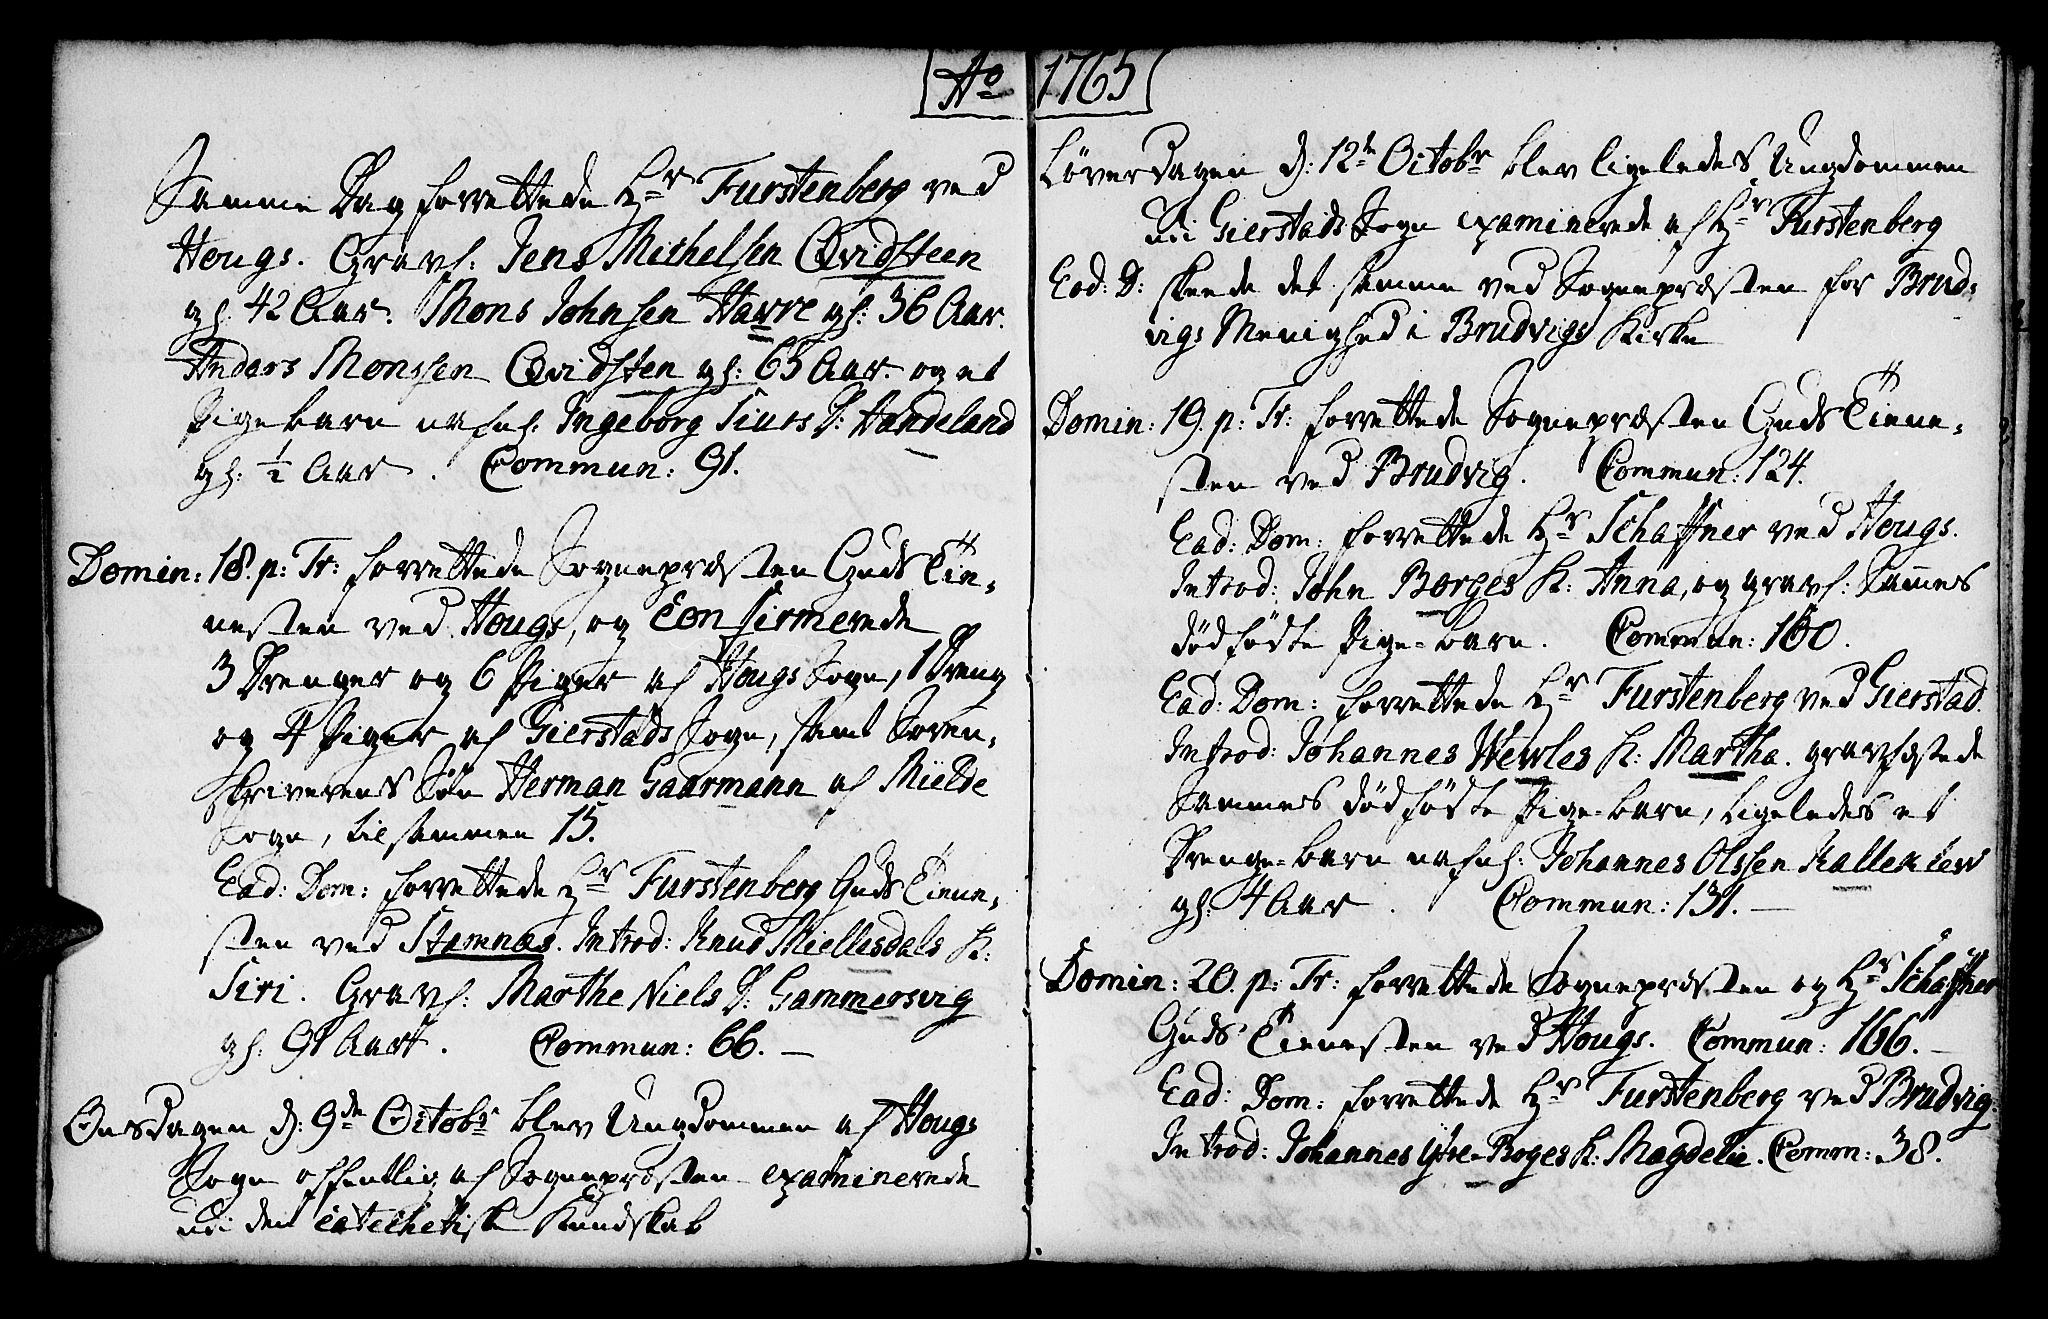 Ao 1765
Samme Dag forrettede Hr Furstenberg ved
Hougs. Gravf: Jens Michelsen Qvidsteen
gl. 42 Aar. Mons Johnsen Havre gl: 36 Aar.
Anders Monssen Qvidsten gl: 65 Aar. og et
Pigebarn nafnl. Ingeborg Siurs D: Handeland
gl: 1/2 Aar. Commun: 91.
Domin: 18. p: Tr: forrettede Sognepræsten Guds Tie-
nesten ved Hougs, og Confirmerede
3 Drenger og 6 Piger af Hougs Sogn, 1 Dreng
og 4 Piger af Gierstads Sogn, samt Soren-
skriverens Søn Herman Gaarmann af Mielde
Sogn, tilsammen 15.
Ead: Dom: forrettede Hr Furstenberg Guds Tiene-
sten ved Stamnæs. Introd: Knud Miellesdals K:
Siri. Gravf: Marthe Niels D: Gammersvig
gl: 91 Aar. Commun: 66.
Onsdagen d: 9de Octobr blev Ungdommen af Hougs
Sogn offentlig af Sognepræsten examinerede
udi den catechetiske Kundskab
Løverdagen d: 12te Octobr blev ligeledes Ungdommen
udi Gierstads Sogn examinerede af Hr Furstenberg
Eod: D: skeede det samme ved Sognepræsten for Brud-
vigs Menighed i Brudvigs Kirke
Domin: 19. p: Tr: forrettede Sognepræsten Guds Tiene-
sten ved Brudvig. Commun: 124.
Ead: Dom: forrettede Hr Schaffner ved Hougs.
Introd: John Borges K: Anna, og gravf: Sammes
dødfødte Pige-barn. Commun: 160.
Ead: Dom: forrettede Hr Furstenberg ved Gierstad.
Introd: Johannes Hewles K: Martha. gravfæstede
Sammes dødfødte Pige-barn, ligeledes et
Drenge-barn nafnl: Johannes Olssen Kalleklev
gl: 4 Aar. Commun: 131.
Domin: 20. p: Tr: forrettede Sognepræsten og Hr Schaffner
Guds Tienesten ved Hougs. Commun: 166.
Ead: Dom: forrettede Hr Furstenberg ved Brudvig.
Introd: Johannes Ytre-Boges K: Magdele. Comm: 38.